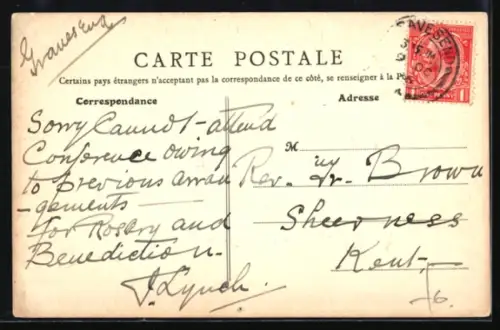 Gravesend
CARTE POSTALE
Certains pays étrangers n'acceptant pas la correspondance de ce côté, se renseigner à la Po
Correspondance
Adresse
Sorry Cannot attend
Conference owing
to previous arran
-gements
for Rosary and
Benediction.
J. Lynch.
M
Rev. Fr. Brown
Sheerness
Kent
AVESEND
OC
1 1